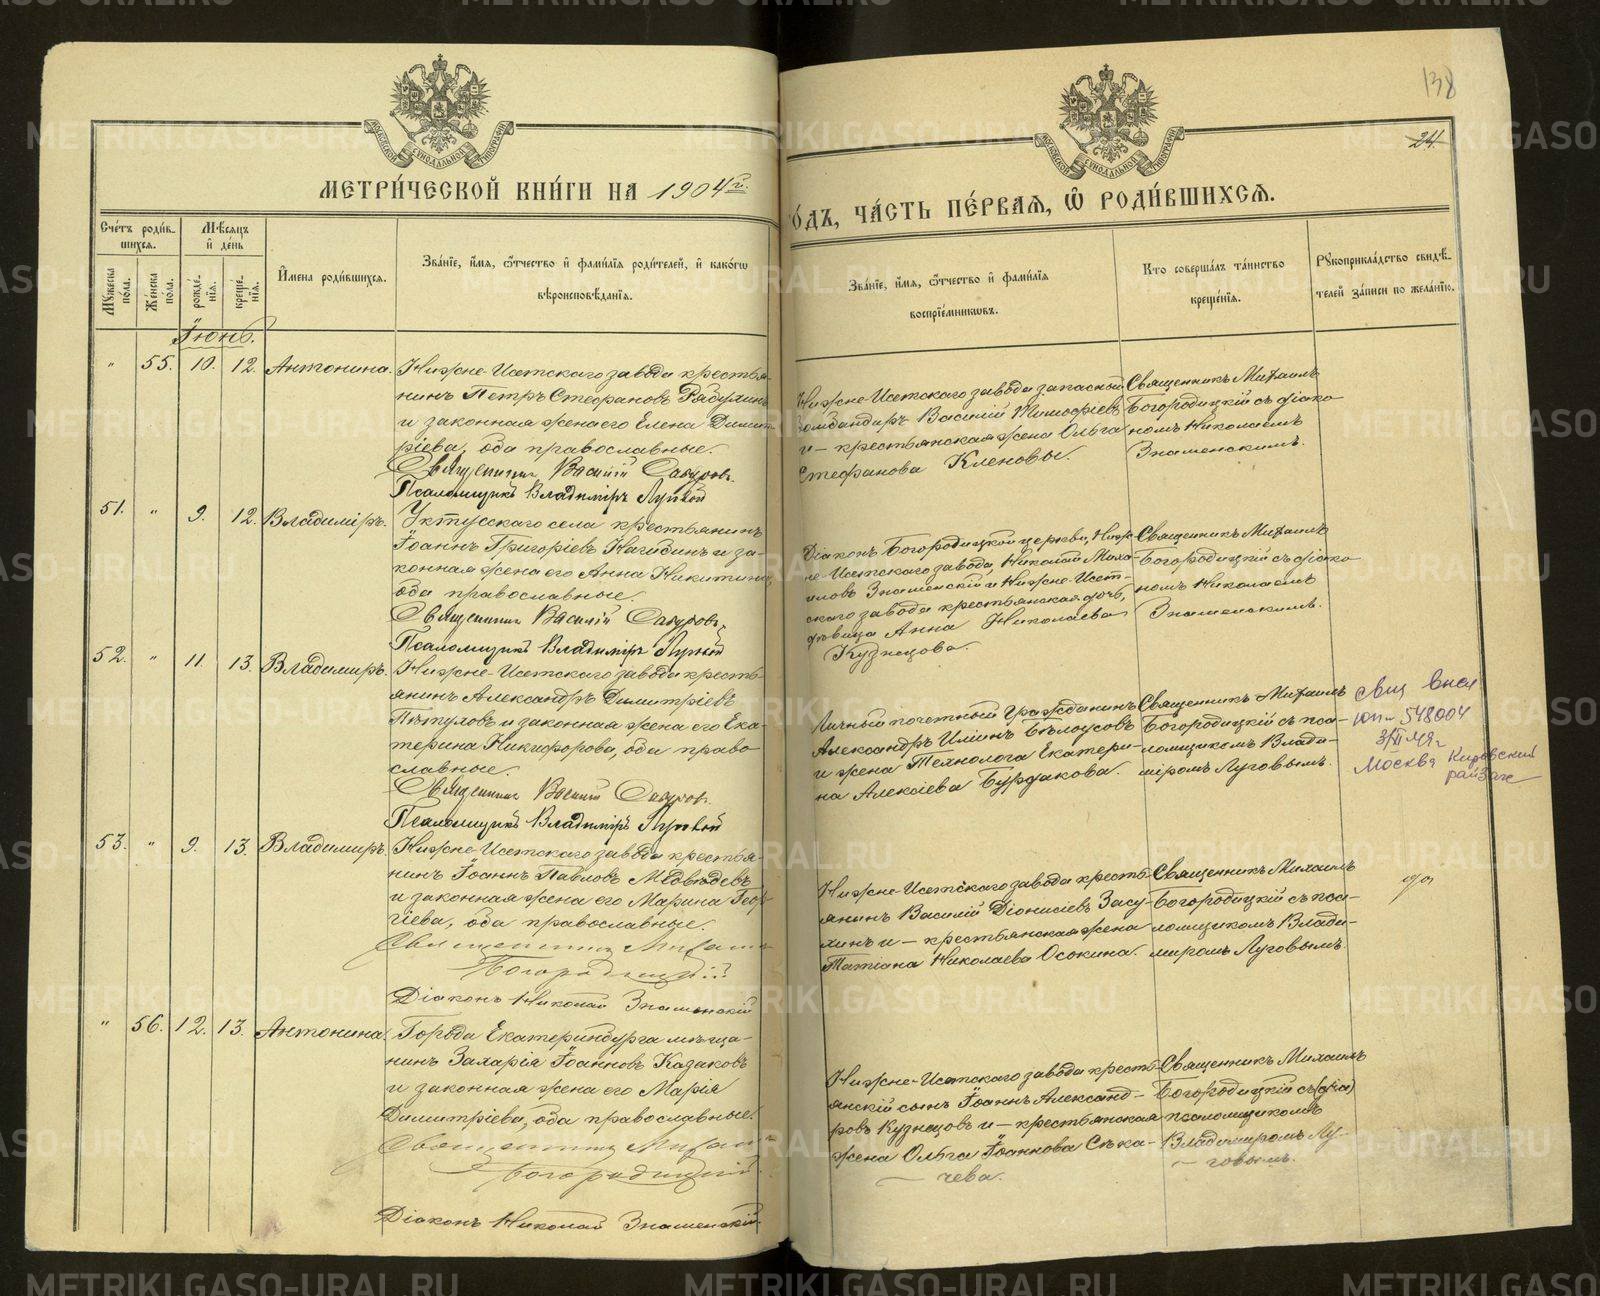 138
24.
МЕТРИ́ЧЕСКОЙ КНИ́ГИ НА 1904 г.
О́ДЪ, ЧА́СТЬ ПЕ́РВАЯ, Ѿ РОДИ́ВШИХСЯ.
Сче́тъ роди́в-
шихся.
Мѣсяцъ
и҆ де́нь
Мꙋ́жеска по́ла.
Же́нска по́ла.
рожде́-
нїя.
креще-
нїя.
И҆мена роди́вшихся.
Зва́нїе, и҆́мя, ѻ҆́тчество и҆ фами́лїя роди́телей, и҆ како́гѡ
вѣроисповѣ́данїя.
Зва́нїе, и҆́мя, ѻ҆́тчество и҆ фами́лїя
воспрїе́мникѡвъ.
Кто соверша́лъ та́инство
креще́нїя.
Рꙋкоприкла́дство свидѣ́-
телей за́писи по жела́нїю.
Іюнь.
" 55. 10. 12. Антонина.
Нижне-Исетскаго завода крестья-
нинъ Петръ Стефановъ
и законная жена его Елена Димит-
ріева, оба православные.
Священникъ Василій
Псаломщикъ Владиміръ Луговой
Нижне-Исетскаго завода запасный
Василій Тимофіевъ
и – крестьянская жена Ольга
Стефанова Кленовы.
Священникъ Михаилъ
Богородицкій съ діако-
номъ Николаемъ
Знаменскимъ.
51. " 9. 12. Владиміръ.
Уктусскаго села крестьянинъ
Іоаннъ Григоріевъ Нагибинъ и за-
конная жена его Анна Никитина,
оба православные.
Священникъ Василій
Псаломщикъ Владиміръ Луговой
Діаконъ Богородицкой церкви, Ниж-
не-Исетскаго завода, Николай Миха-
иловъ Знаменскій и Нижне-Исет-
скаго завода крестьянская дочь,
дѣвица Анна Николаева
Кузнецова.
Священникъ Михаилъ
Богородицкій съ діако-
номъ Николаемъ
Знаменскимъ.
52. " 11. 13. Владимиръ.
Нижне-Исетскаго завода кресть-
янинъ Александръ Димитріевъ
Пѣтуховъ и законная жена его Ека-
терина Никифорова, оба право-
славные.
Священникъ Василій
Псаломщикъ Владиміръ Луговой
Личный почетный гражданинъ
Александръ Ильинъ Бѣлоусовъ
и жена Технолога Екатери-
на Алексіева Бурдакова.
Священникъ Михаилъ
Богородицкій съ пса-
ломщикомъ Влади-
міромъ Луговымъ.
548004
3/II 48 г
Москва Кировский
райЗагс
53. " 9. 13. Владимиръ.
Нижне-Исетскаго завода крестья-
нинъ Іоаннъ Павловъ Медвѣдевъ
и законная жена его Марина Геор-
гіева, оба православные.
Священникъ Михаилъ
Богородицкій
Діаконъ Николай Знаменскій
Нижне-Исетскаго завода кресть-
янинъ Василій Діонисіевъ Засу-
хинъ и – крестьянская жена
Татіана Николаева Осокина.
Священникъ Михаилъ
Богородицкій съ пса-
ломщикомъ Влади-
міромъ Луговымъ.
" 56. 12. 13. Антонина.
Города Екатеринбурга мѣща-
нинъ Захарія Іоанновъ Казаковъ
и законная жена его Марія
Димитріева, оба православные.
Священникъ Михаилъ
Богородицкій.
Діаконъ Николай Знаменскій.
Нижне-Исетскаго завода кресть-
янскій сынъ Іоаннъ Александ-
ровъ Кузнецовъ и – крестьянская
жена Ольга Іоаннова Сѣка-
чева.
Священникъ Михаилъ
Богородицкій съ (діа)
псаломщикомъ
Владимиромъ Лу-
говымъ.
METRIKI.GASO-URAL.RU